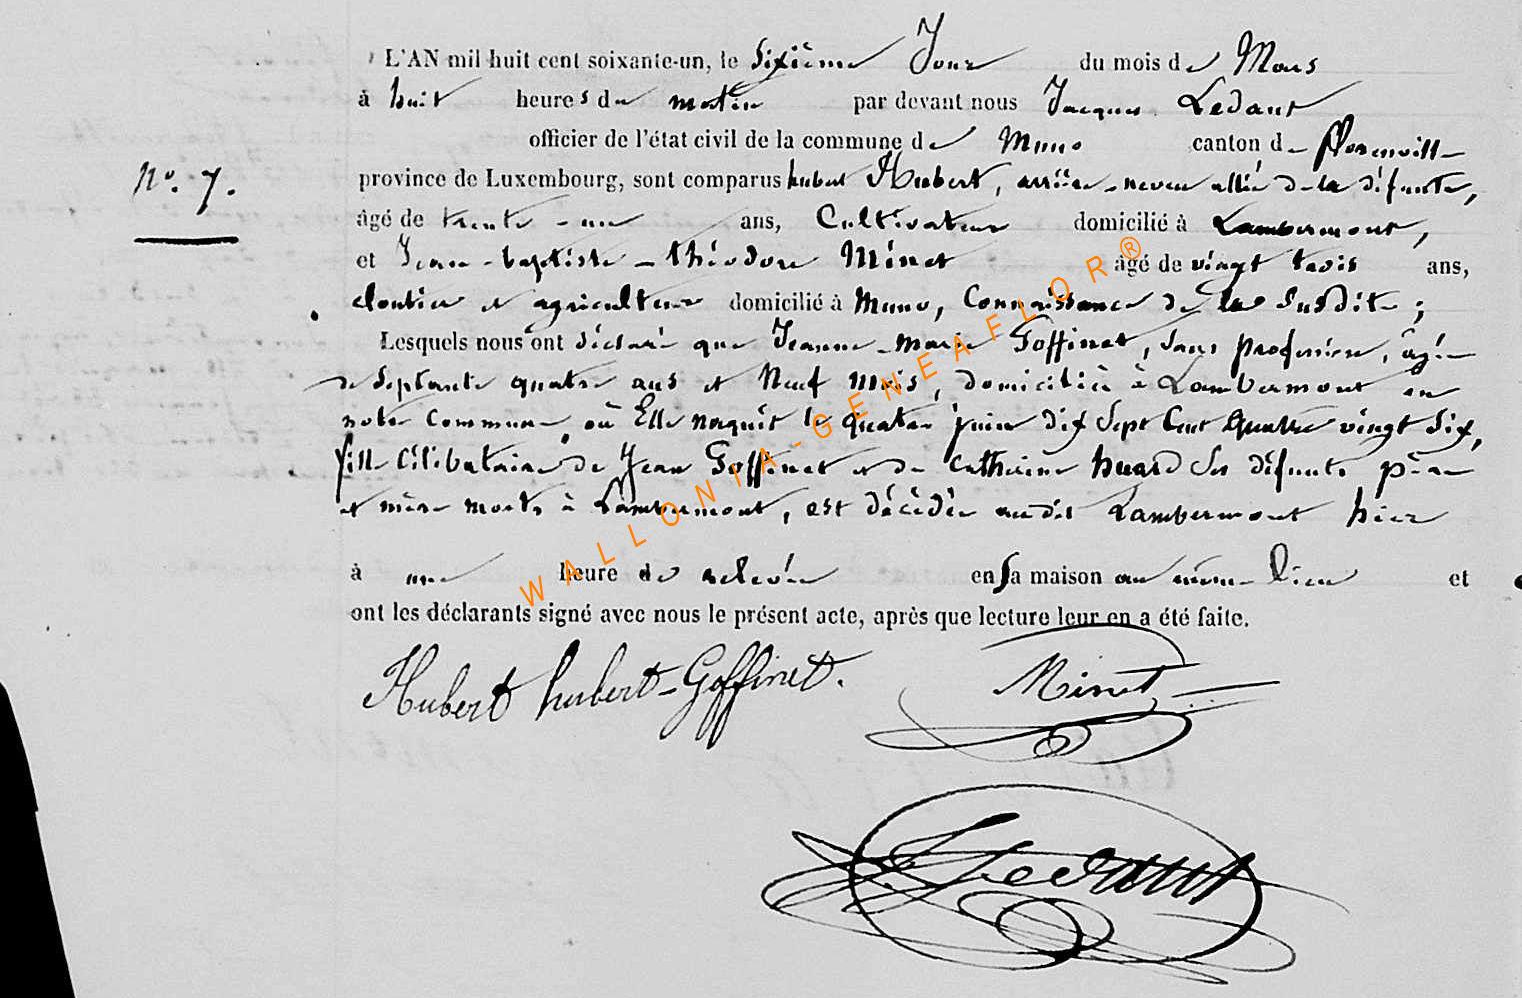 L'AN mil huit cent soixante-un, le sixième Jour du mois de Mars
à huit heures du matin par devant nous Jacques Ledant
officier de l'état civil de la commune de Muno canton de florenville
N°. 7.
province de Luxembourg, sont comparus hubert Hubert, arrière-neveu allié de la défunte,
âgé de trente-un ans, Cultivateur domicilié à Lambermont,
et Jean-baptiste-théodore Minet âgé de vingt trois ans,
cloutier et agriculteur domicilié à Muno, Connaissance de la susdite;
Lesquels nous ont déclaré que Jeanne-Marie Goffinet, sans profession, âgée
de septante quatre ans et Neuf mois, domiciliée à Lambermont en
notre Commune où Elle naquit le quatre juin dix sept Cent quatre vingt six,
fille Célibataire de Jean Goffinet et de Catherine huard ses défunts père
et mère morts à Lambermont, est décédée audit Lambermont hier
à une heure de relevée en sa maison au même lieu et
ont les déclarants signé avec nous le présent acte, après que lecture leur en a été faite.
Hubert hubert-Goffinet. Minet
Ledant
WALLONIA-GENEAFLOR®